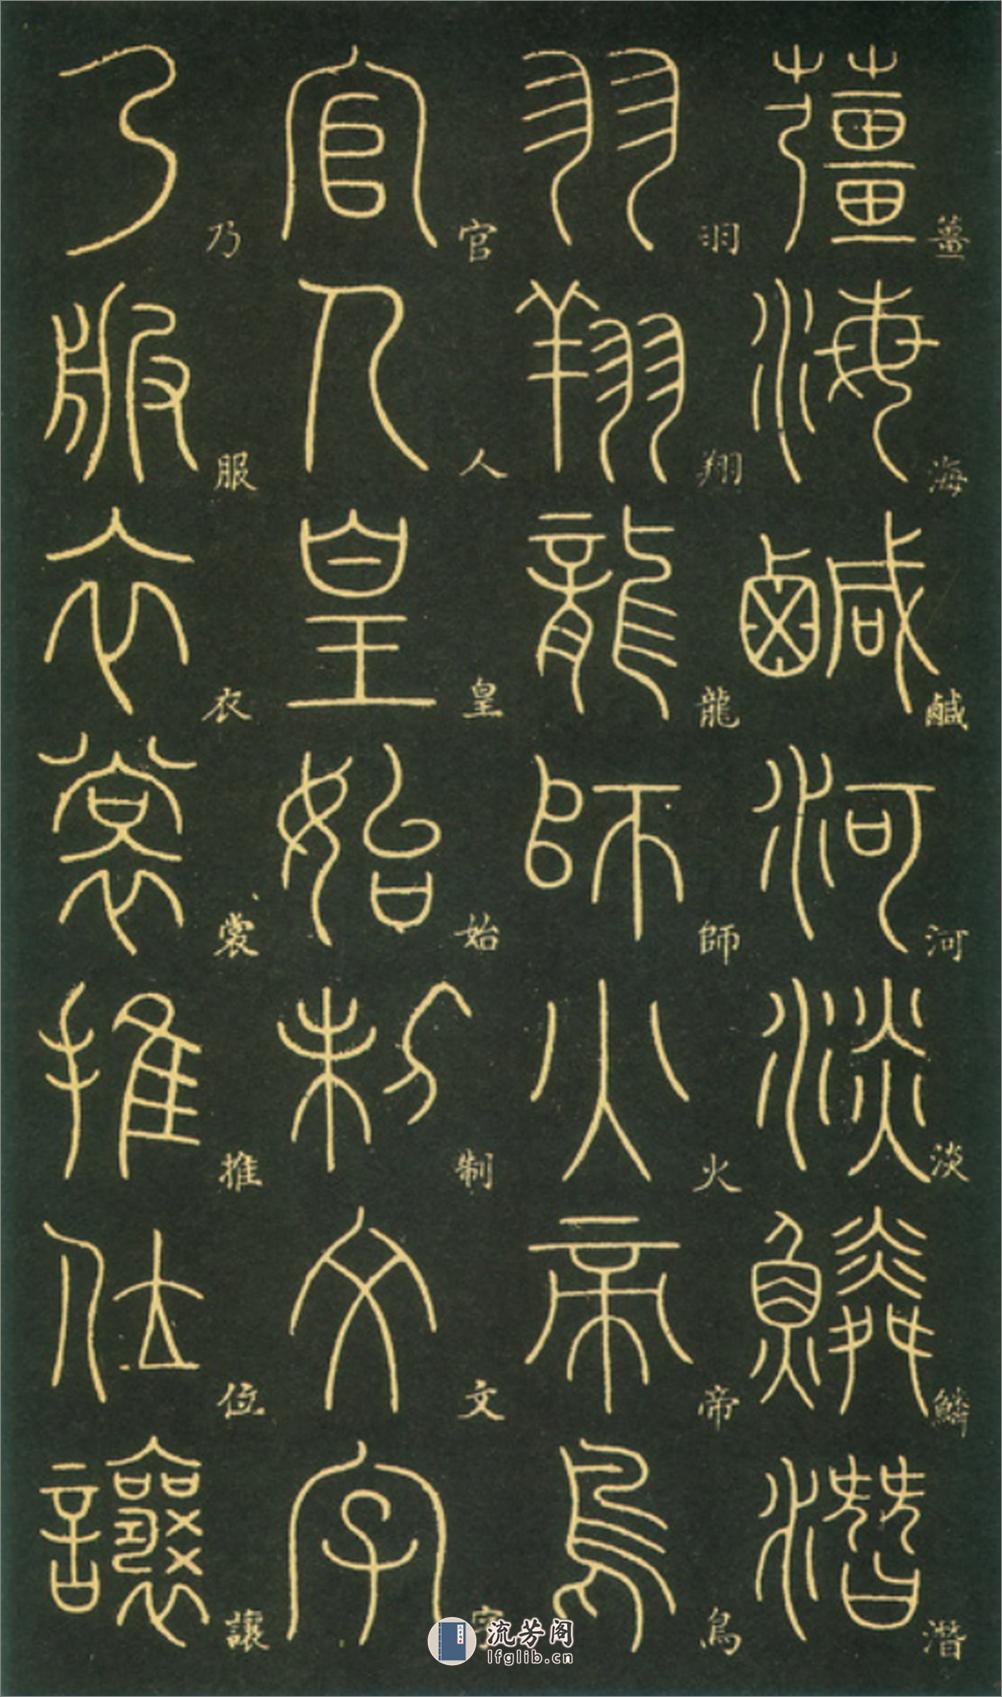 薑海鹹河淡鱗潛
羽翔龍師火帝鳥
官人皇始制文字
乃服衣裳推位讓
薑
海
鹹
河
淡
鱗
潛
羽
翔
龍
師
火
帝
鳥
官
人
皇
始
制
文
字
乃
服
衣
裳
推
位
讓
流芳阁
lfglib.cn